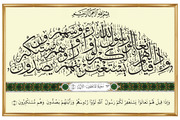 بسم الله الرحمن الرحيم
وإذا قيل لهم تعالوا يستغفر لكم رسول الله لووا رءوسهم ورأيتهم يصدون وهم مستكبرون
وَإِذَا قِيلَ لَهُمْ تَعَالَوْا يَسْتَغْفِرْ لَكُمْ رَسُولُ اللَّهِ لَوَّوْا رُءُوسَهُمْ وَرَأَيْتَهُمْ يَصُدُّونَ وَهُمْ مُسْتَكْبِرُونَ